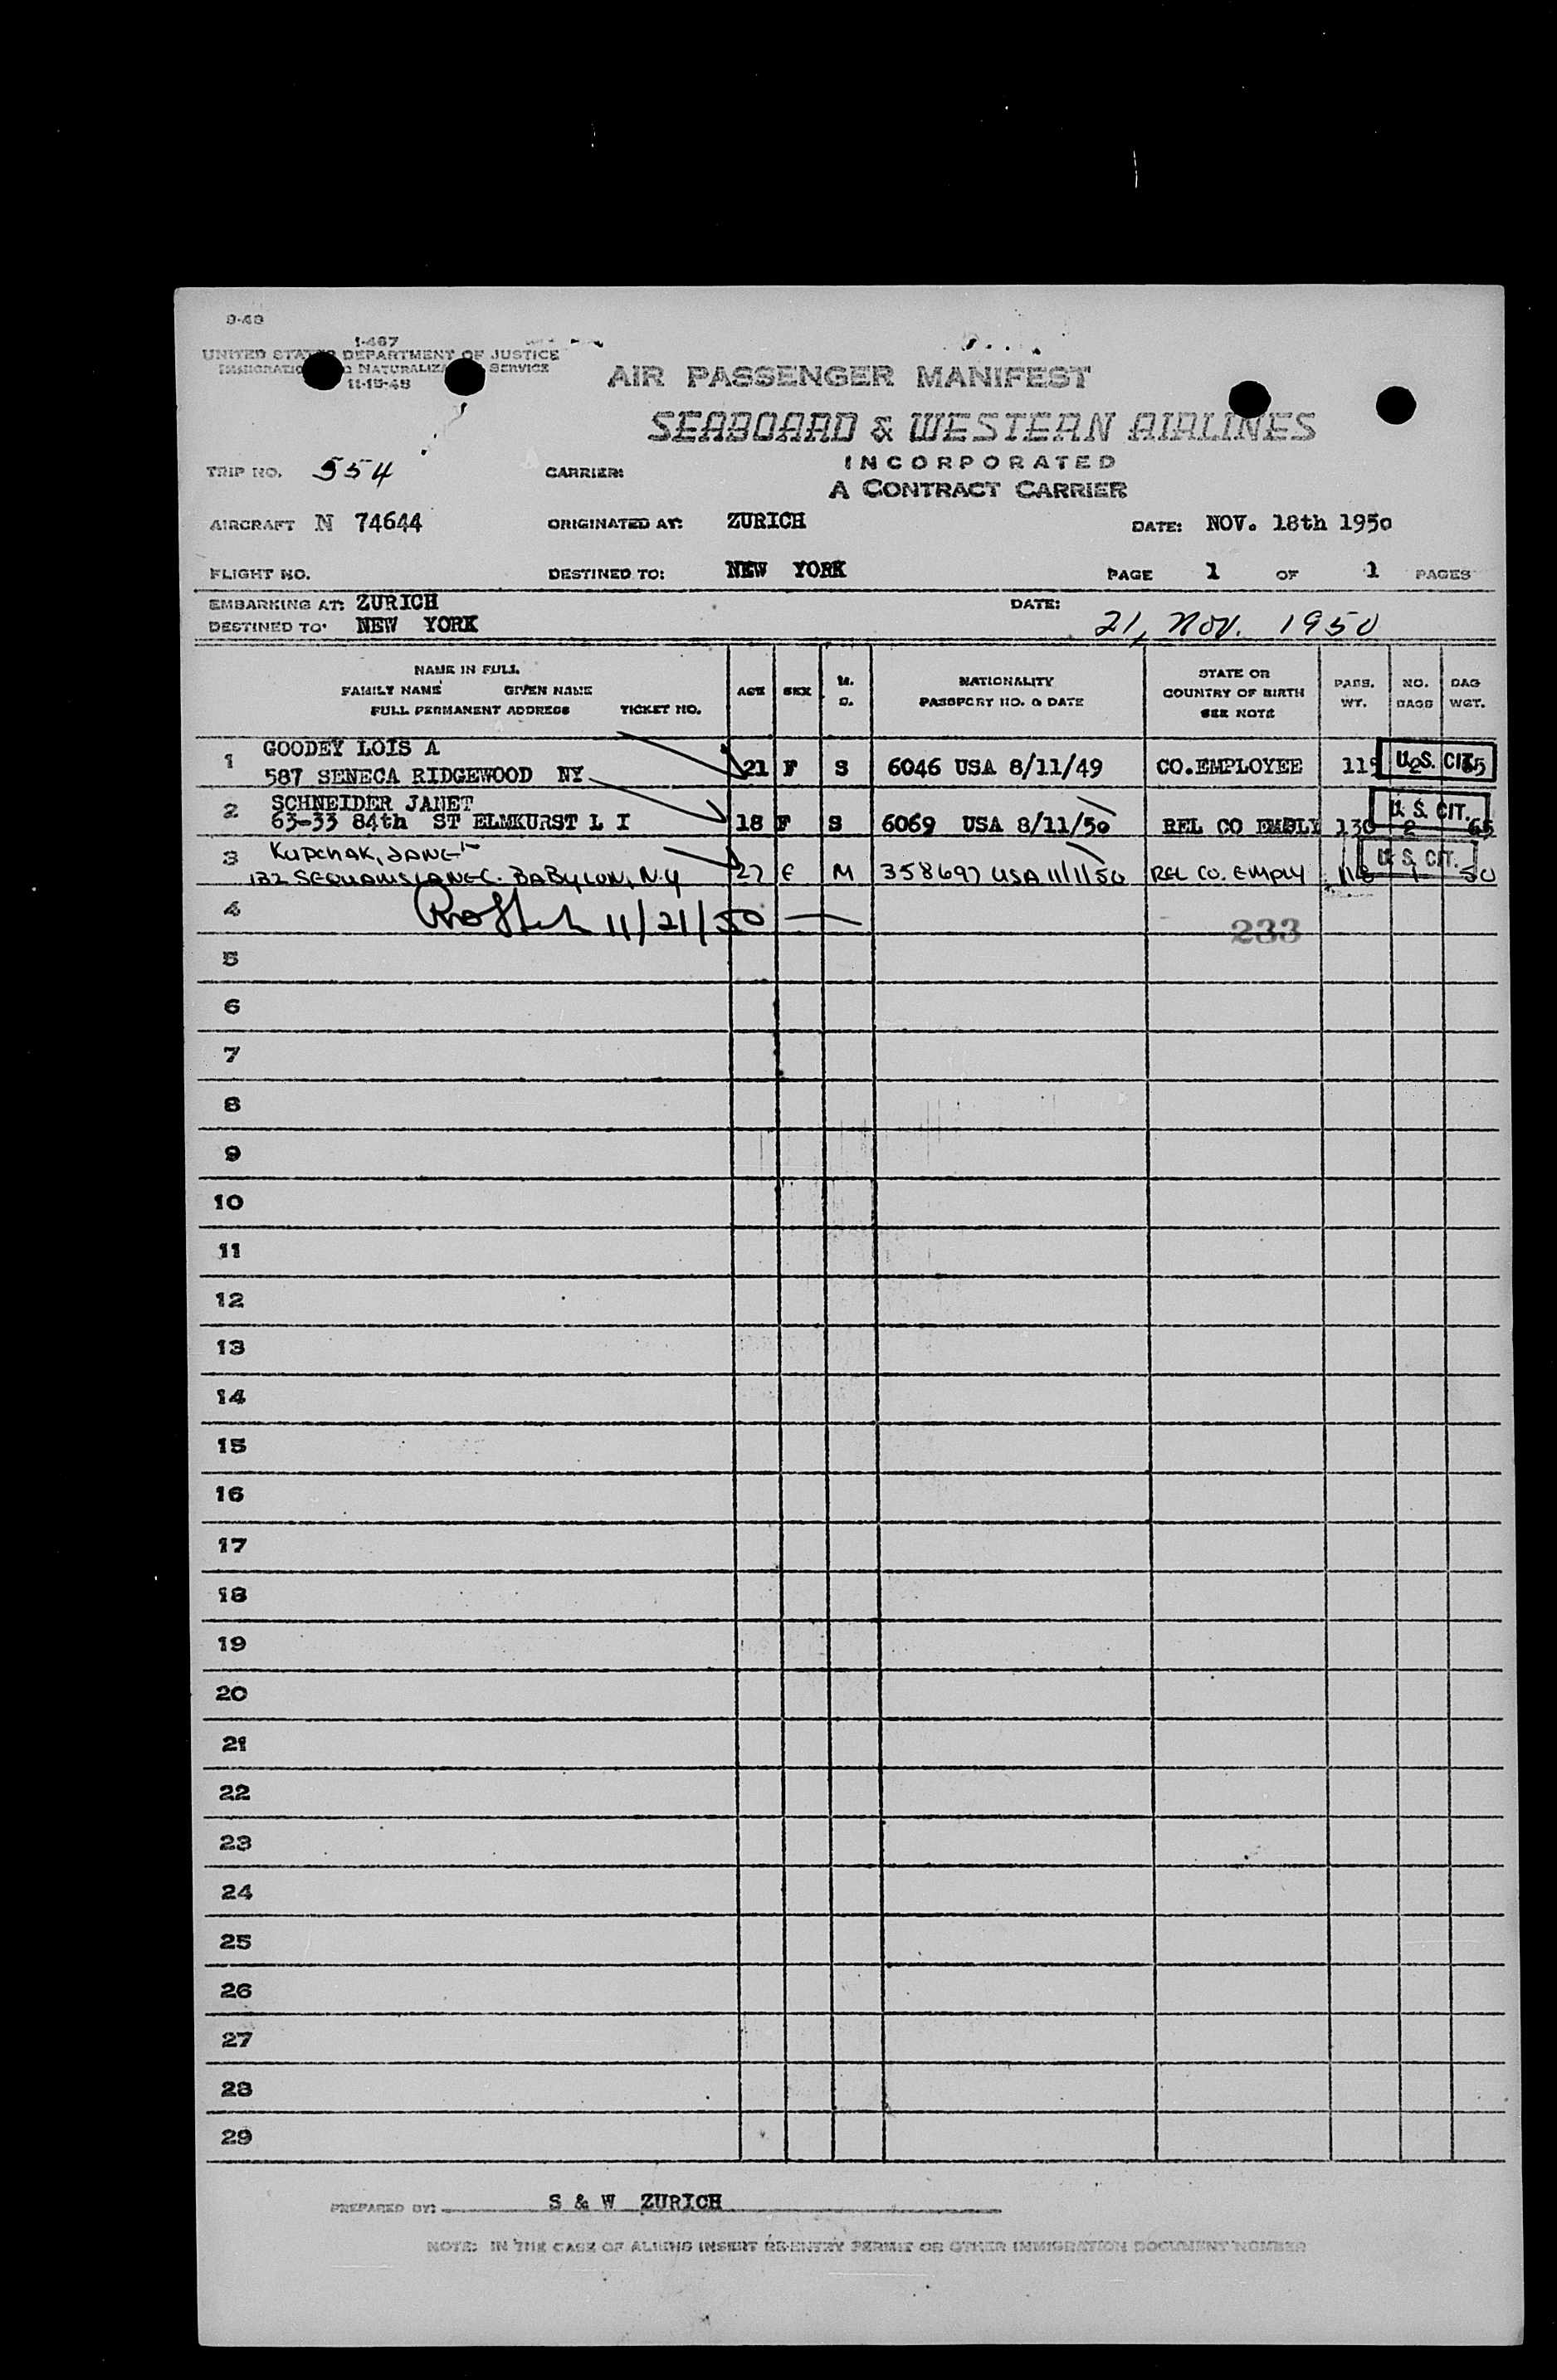 9-49
I-467
UNITED STATES DEPARTMENT OF JUSTICE
IMMIGRATION NATURALIZA SERVICE
11-15-48
AIR PASSENGER MANIFEST
SEABOARD & WESTERN AIRLINES
INCORPORATED
A CONTRACT CARRIER
TRIP NO. 554 CARRIER:
AIRCRAFT N 74644 ORIGINATED AT: ZURICH DATE: NOV. 18th 1950
FLIGHT NO. DESTINED TO: NEW YORK PAGE 1 OF 1 PAGES
EMBARKING AT: ZURICH DATE:
DESTINED TO: NEW YORK 21, Nov. 1950
NAME IN FULL
FAMILY NAME GIVEN NAME
FULL PERMANENT ADDRESS TICKET NO.
AGE SEX M. S.
NATIONALITY
PASSPORT NO. & DATE
STATE OR
COUNTRY OF BIRTH
SEE NOTE
PASS. WT.
NO. BAGS
BAG WGT.
1 GOODEY LOIS A
587 SENECA RIDGEWOOD NY 21 F S 6046 USA 8/11/49 CO.EMPLOYEE 119 2 65
U.S. CIT.
2 SCHNEIDER JANET
63-33 84th ST ELMKURST L I 18 F S 6069 USA 8/11/50 REL CO EMPLY 130 2 65
U. S. CIT.
3 KUPCHAK, JANET
132 SEQUAMS LANE C. BABYLON, N.Y 27 F M 358697 USA 11/1/50 REL CO. EMPLY 118 1 50
U. S. CIT.
4 11/21/50
233
5
6
7
8
9
10
11
12
13
14
15
16
17
18
19
20
21
22
23
24
25
26
27
28
29
PREPARED BY: S & W ZURICH
NOTE: IN THE CASE OF ALIENS INSERT RE-ENTRY PERMIT OR OTHER IMMIGRATION DOCUMENT NUMBER